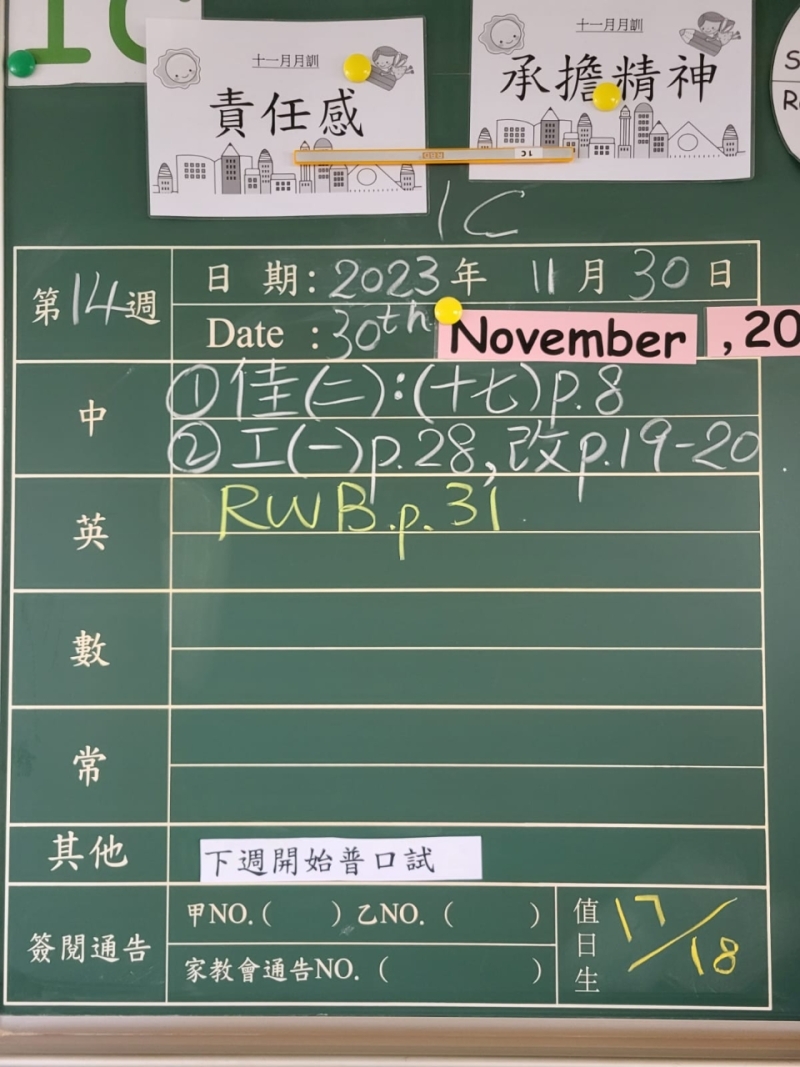 1C
十一月月訓
責任感
十一月月訓
承擔精神
1C
1C
第14週
日 期：2023年 11月30日
Date : 30th November , 20
中
①佳(二)：(十七)p.8
②工(一)p.28,改p.19-20
英
RWB.p.31
數
常
其他
下週開始普口試
簽閱通告
甲NO.( ) 乙NO.( )
家教會通告NO.( )
值日生
17/18